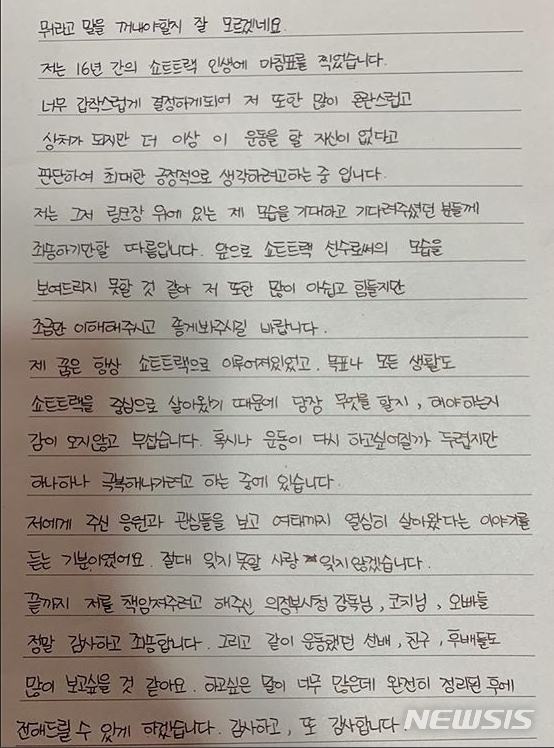 뭐라고 말을 꺼내야할지 잘 모르겠네요.
저는 16년 간의 쇼트트랙 인생에 마침표를 찍었습니다.
너무 갑작스럽게 결정하게되어 저 또한 많이 혼란스럽고
상처가 되지만 더 이상 이 운동을 할 자신이 없다고
판단하여 최대한 긍정적으로 생각하려고하는 중 입니다.
저는 그저 링크장 위에 있는 제 모습을 기대하고 기다려주셨던 분들께
죄송하기만할 따름입니다. 앞으로 쇼트트랙 선수로써의 모습을
보여드리지 못할 것 같아 저 또한 많이 아쉽고 힘들지만
조금만 이해해주시고 좋게봐주시길 바랍니다.
제 꿈은 항상 쇼트트랙으로 이루어져있었고, 목표나 모든 생활도
쇼트트랙을 중심으로 살아왔기 때문에 당장 무엇을 할지, 해야하는지
감이 오지않고 무섭습니다. 혹시나 운동이 다시 하고싶어질까 두렵지만
하나하나 극복해나가려고 하는 중에 있습니다.
저에게 주신 응원과 관심들을 보고 여태까지 열심히 살아왔다는 이야기를
듣는 기분이였어요. 절대 잊지못할 사랑 잊지않겠습니다.
끝까지 저를 책임져주려고 해주신 의정부시청 감독님, 코치님, 오빠들
정말 감사하고 죄송합니다. 그리고 같이 운동했던 선배, 친구, 후배들도
많이 보고싶을 것 같아요. 하고싶은 말이 너무 많은데 완전히 정리된 후에
전해드릴 수 있게 하겠습니다. 감사하고, 또 감사합니다.
NEWSIS